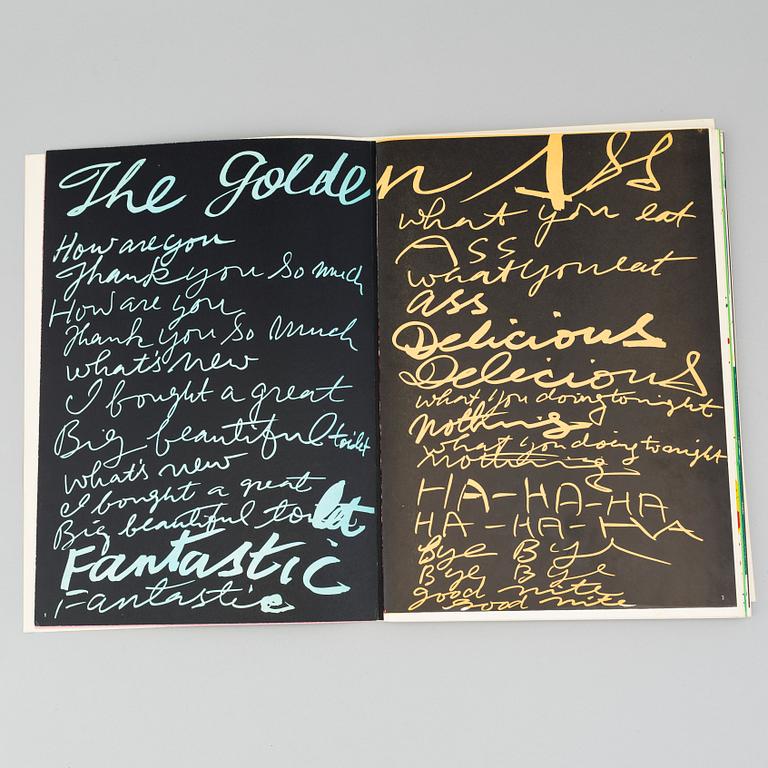 The Golden Ass
How are you
Thank you so much
How are you
Thank you so much
what's new
I bought a great
Big beautiful toilet
what's new
I bought a great
Big beautiful toilet
Fantastic
Fantastic
what you eat
Ass
what you eat
ass
Delicious
Delecious
what you doing tonight
nothing
what you doing tonight
nothing
HA-HA-HA
HA-HA-HA
Bye Bye
Bye Bye
good nite
good nite